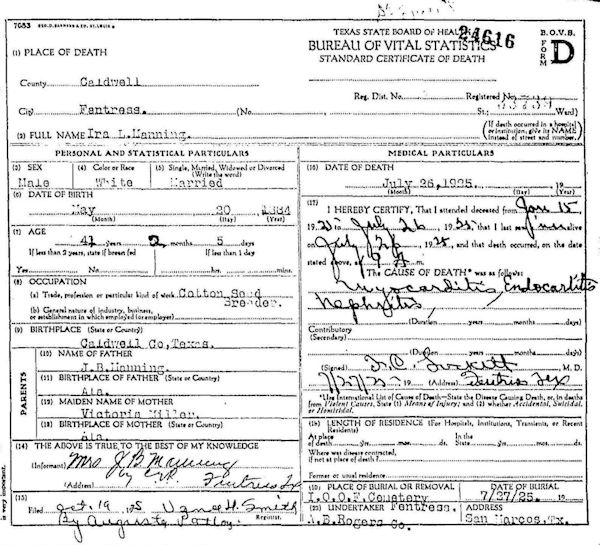 7053
TEXAS STATE BOARD OF HEALTH
BUREAU OF VITAL STATISTICS
STANDARD CERTIFICATE OF DEATH
24616
B.O.V.S.
FORM D
(1) PLACE OF DEATH
County Caldwell
City Fentress.
Reg. Dist. No.
Registered No.
St.; Ward)
(If death occurred in a hospital or institution, give its NAME instead of street and number.)
(2) FULL NAME Ira L.Manning.
PERSONAL AND STATISTICAL PARTICULARS
(3) SEX
Male
(4) Color or Race
White
(5) Single, Married, Widowed or Divorced
(Write the word)
Married
(6) DATE OF BIRTH
May 20 1884
(Month) (Day) (Year)
(7) AGE
41 years 2 months 5 days
If less than 2 years, state if breast fed
If less than 1 day
Yes No hrs. mins.
(8) OCCUPATION
(a) Trade, profession or particular kind of work Cotton Seed
Breeder.
(b) General nature of industry, business,
or establishment in which employed (or employer)
(9) BIRTHPLACE (State or County)
Caldwell Co,Texas.
PARENTS
(10) NAME OF FATHER
J.B.Manning.
(11) BIRTHPLACE OF FATHER (State or County)
Ala.
(12) MAIDEN NAME OF MOTHER
Victoria Miller.
(13) BIRTHPLACE OF MOTHER (State or County)
Ala.
(14) THE ABOVE IS TRUE TO THE BEST OF MY KNOWLEDGE
(Informant) Mrs J B Manning
(Address) Fentress Tx
(15)
Filed Oct. 19 Smith
Registrar.
By Augusta
MEDICAL PARTICULARS
(16) DATE OF DEATH
July 26,1925. 19
(Month) (Day) (Year)
(17)
I HEREBY CERTIFY, That I attended deceased from Jan 15
1925 to July 26 1925 that I last saw alive
on July 26 1925, and that death occurred, on the date
stated above, at M.
The CAUSE OF DEATH* was as follows:
Myocarditis, Endocarditis
Nephritis,
(Duration years months days)
Contributory
(Secondary)
(Duration years months days)
(Signed) M. D.
7/27/25 19 (Address) Fentress Tex
*Use International List of Cause of Death—State the Disease Causing Death, or, in deaths from Violent Causes, State (1) Means of Injury; and (2) whether Accidental, Suicidal, or Homicidal.
(18) LENGTH OF RESIDENCE (For Hospitals, Institutions, Transients, or Recent Residents)
At place
of death yrs. mos. ds.
In the
State yrs. mos. ds.
Where was disease contracted,
if not at place of death?
Former or usual residence
(19) PLACE OF BURIAL OR REMOVAL
I.O.O.F.Cemetery
Fentress.
DATE OF BURIAL
7/27/25. 19
(20) UNDERTAKER
A.B.Rogers Co.
ADDRESS
San Marcos,Tx.
is very important.